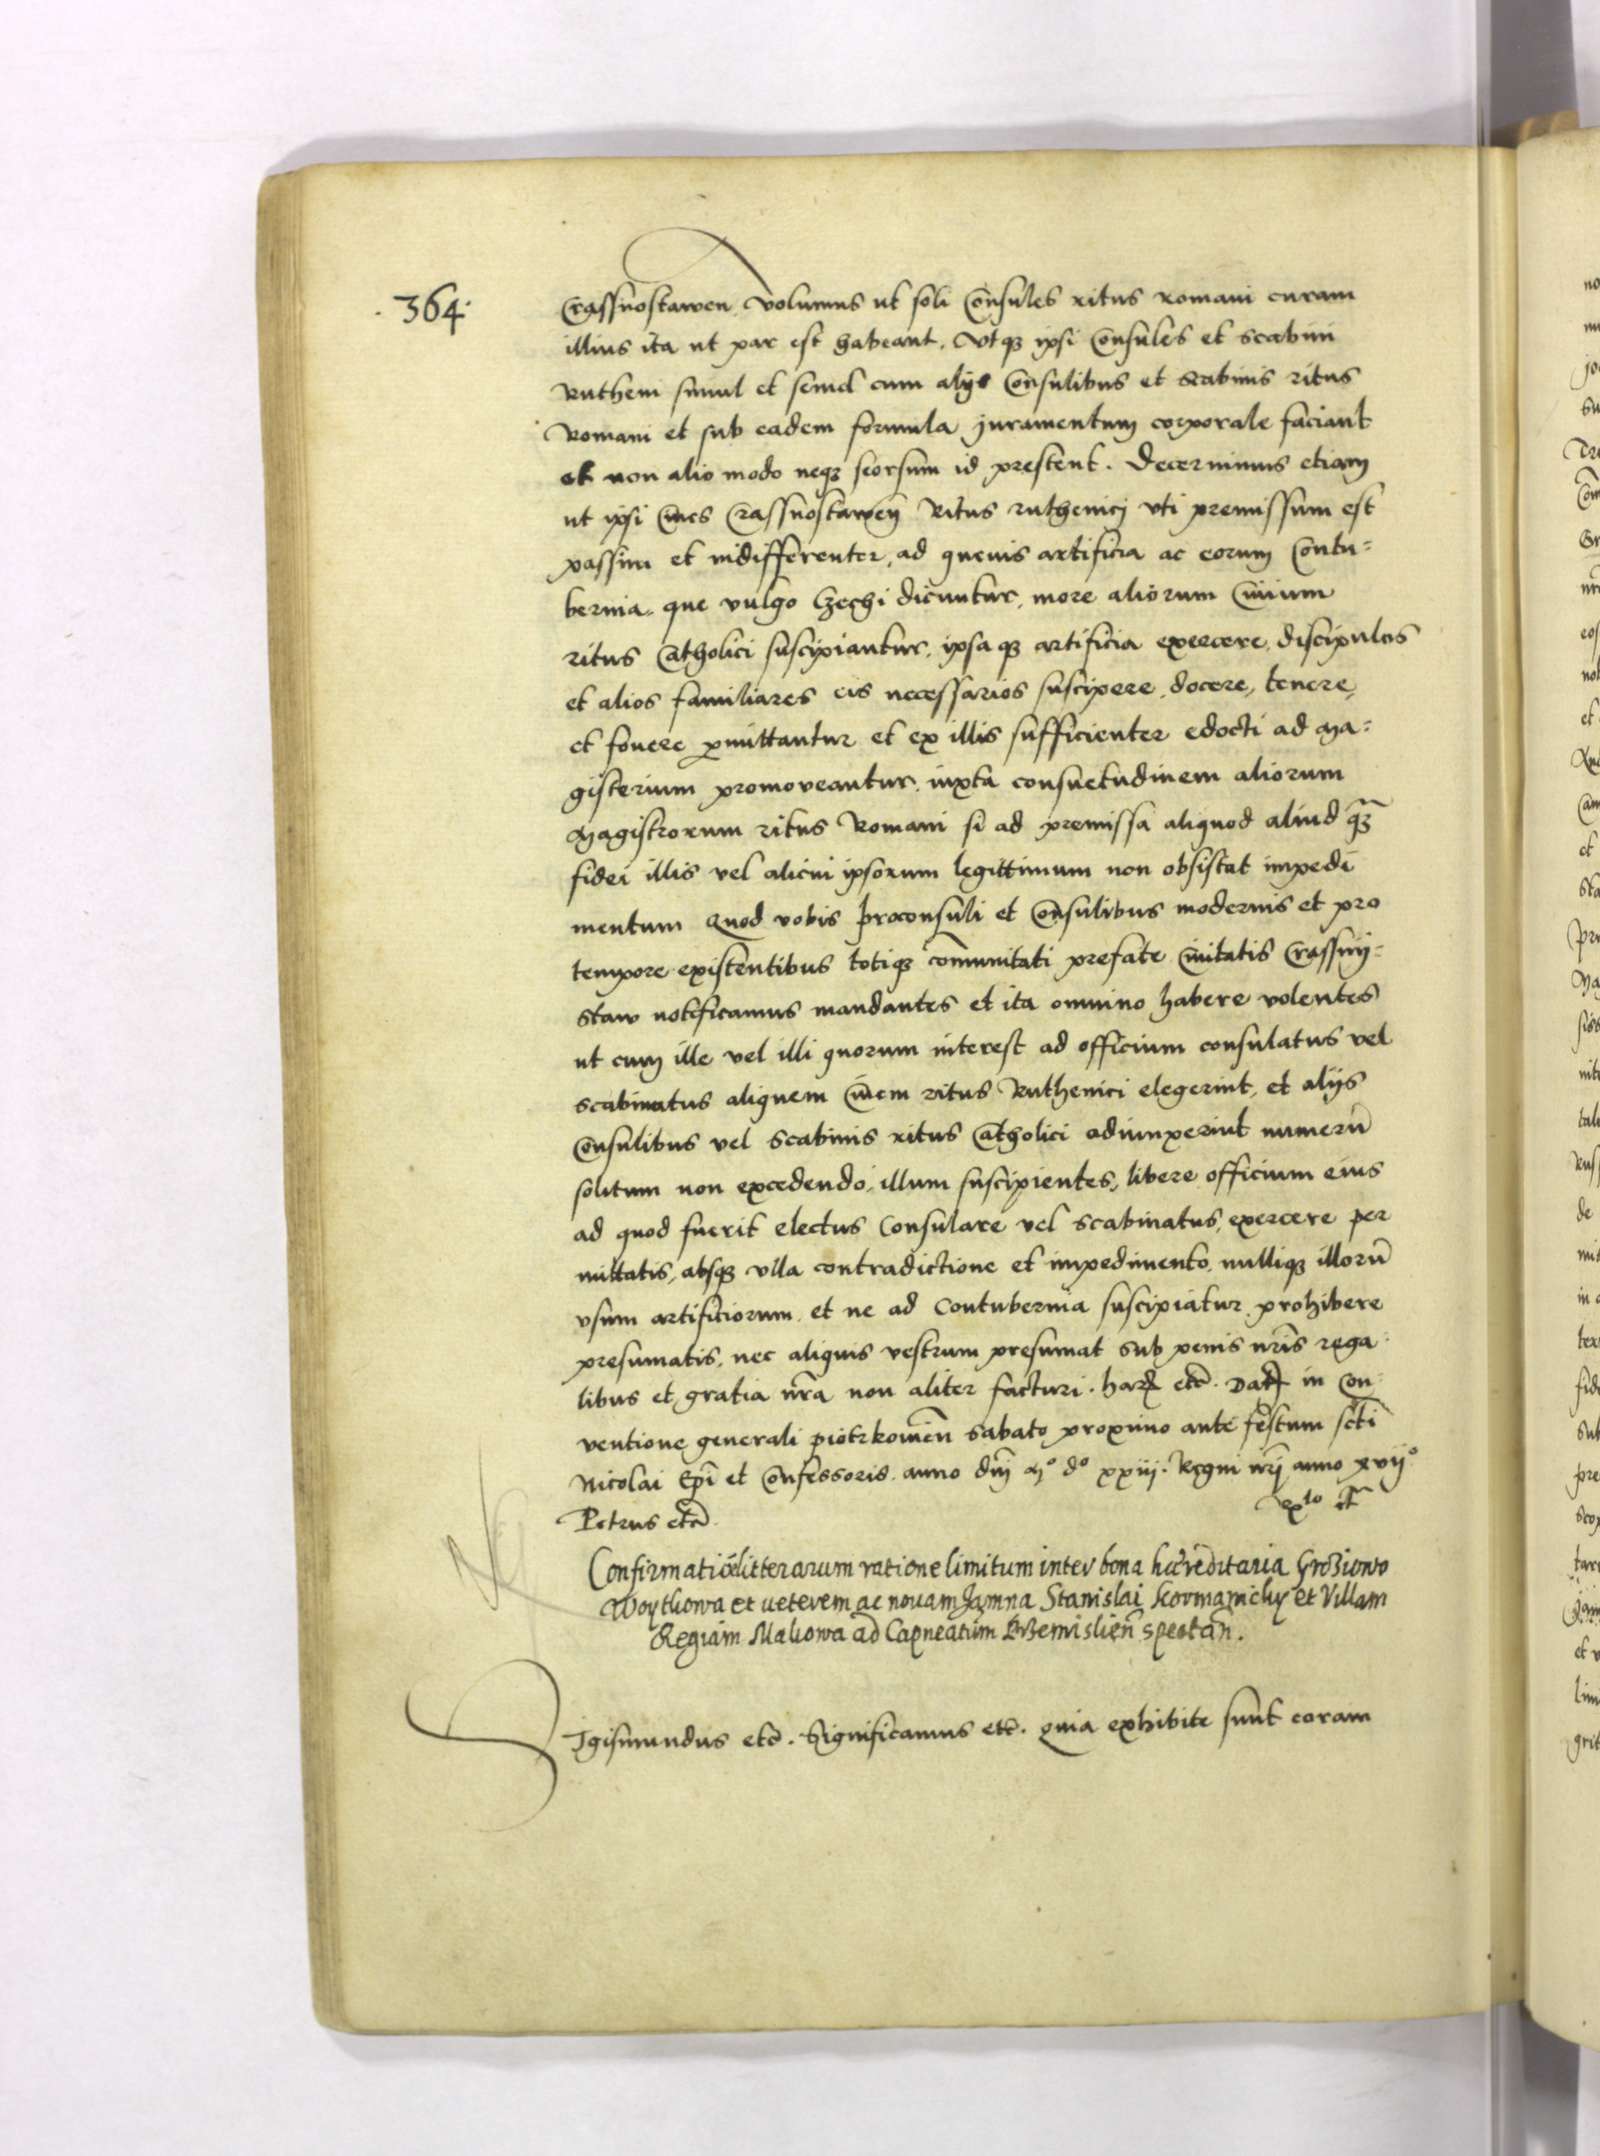 364.
Crassnostawen volumus ut soli Consules ritus romani curam
illius ita ut par est habeant. Utqȝ ipsi Consules et scabini
Rutheni simul et semel cum alys Consulibus et scabinis ritus
Romani et sub eadem formula juramentum corporale faciant
et non alio modo neqȝ seorsum id prestent. Decernimus etiam
ut ipsi Cives Crassnostawen Ritus ruthenici uti premissum est
passim et indifferenter, ad quevis artificia ac eorum Contu=
bernia, que vulgo Czechi dicuntur, more aliorum Civium
ritus Catholici suscipiantur, ipsaqȝ artificia exercere, discipulos
et alios familiares eis necessarios suscipere, docere, tenere,
et fovere pmittantur et ex illis sufficienter edocti ad Ma=
gisterium promoveantur, iuxta consuetudinem aliorum
Magistrorum ritus Romani si ad premissa aliquod aliud qȝ
fidei illis vel alicui ipsorum legittimum non obsistat impedi
mentum Quod vobis proconsuli et Consulibus modernis et pro
tempore existentibus totiqȝ communitati prefate Civitatis Crassny=
staw notificamus mandantes et ita omnino habere volentes
ut cum ille vel illi quorum interest ad officium consulatus vel
scabinatus aliquem Civem ritus Ruthenici elegerint, et aliis
Consulibus vel scabinis ritus Catholici adiunxerint numerū
solitum non excedendo, illum suscipientes, libere officium eius
ad quod fuerit electus Consulare vel scabinatus, exercere per
mittatis, absqȝ ulla contradictione et impedimento, nulliqȝ illorū
usum artificiorum, et ne ad Contubernia suscipiatur prohibere
presumatis, nec aliquis vestrum presumat sub penis nris rega=
libus et gratia nra non aliter facturi. har etc. Dat in Con=
ventione generali piotrkovien Sabato proximo ante festum scti
Nicolai Epi et Confessoris. anno dni Mº dº xxiij. Regni nri anno xvijº
Petrus etc
Confirmatio litterarum ratione limitum inter bona hæreditaria Groziowo
Woythowa et veterem ac novam Jamna Stanislai Kormanichy et Villam
Regiam Makowa ad Capneatum Przemislien spectan.
Sigismundus etc. Significamus etc. Quia exhibite sunt coram